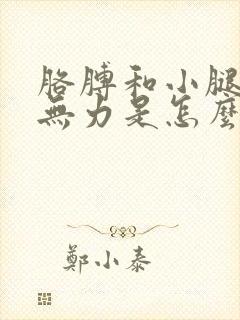 胳膊和小腿
無力是怎麼
鄭小泰